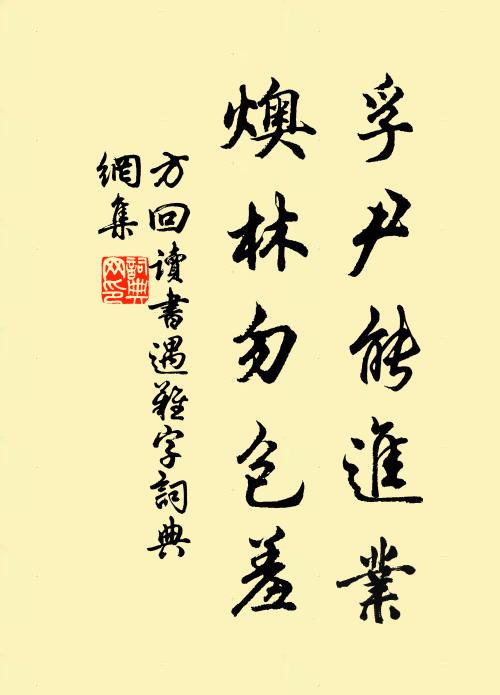 孚尹能進業
燠林勿包羞
方回讀書遇難字詞典
網集
詞典網印